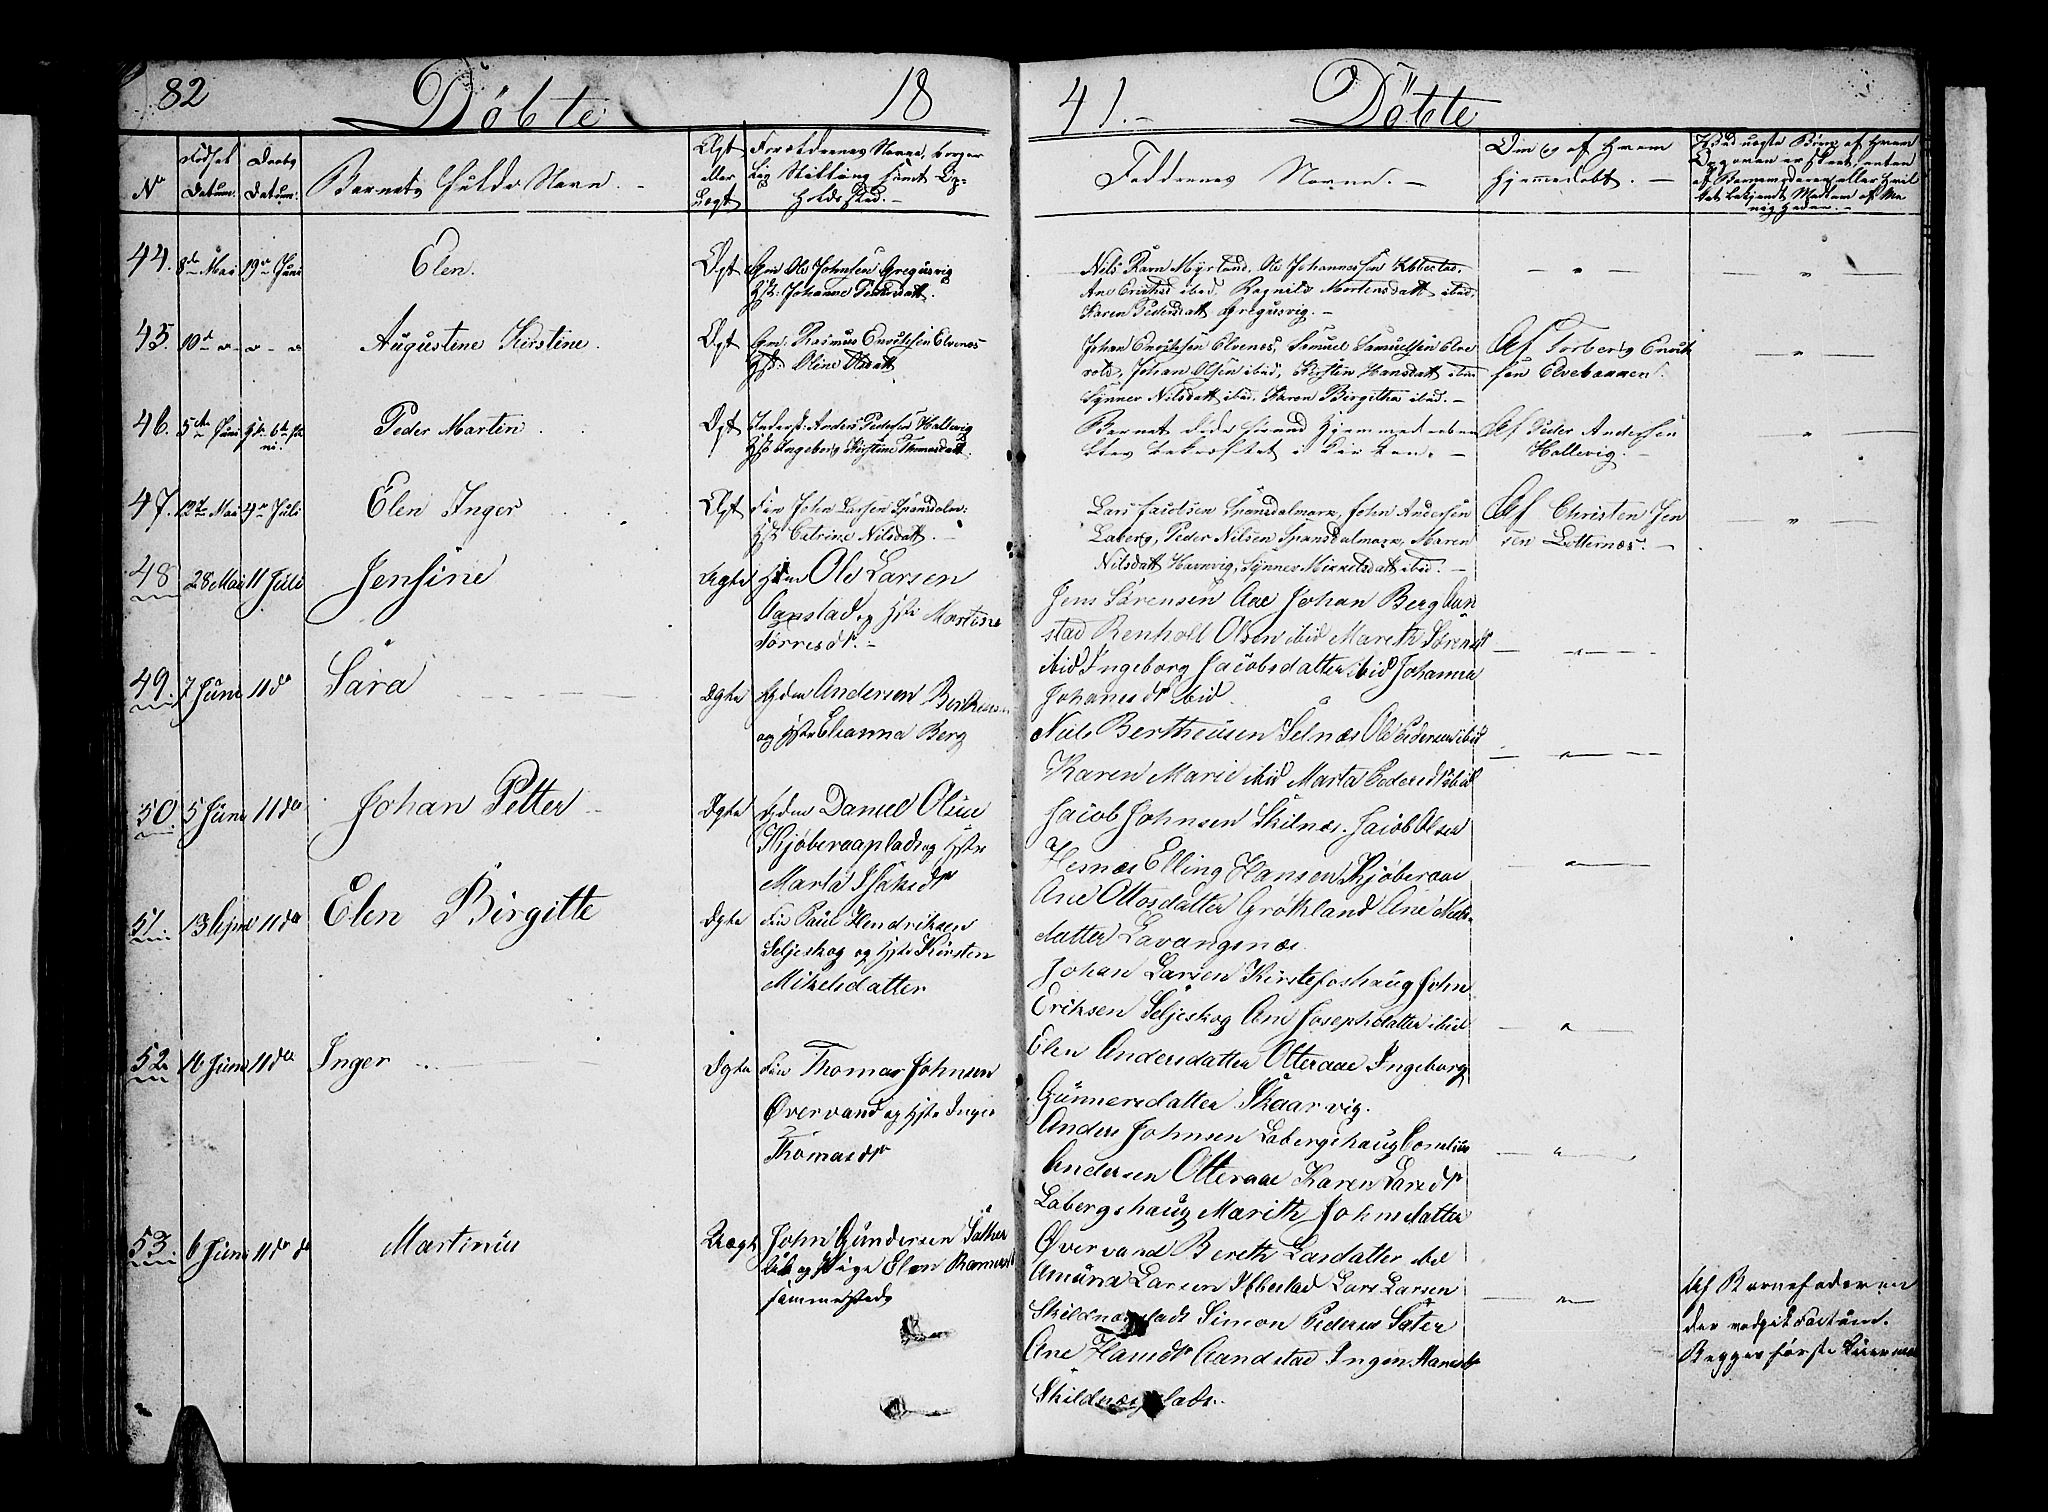 82
Döbte
18
41.-
Döbte
No
Födsel Datum.
Daabs Datum.
Barnets fulde Navn.
Ægt eller Uægt
Forældrenes Navne, borger
lig Stilling samt Op-
holdssted.
Faddernes Navne.
Om og af hvem
hjemmedøbt.
44. 8de Mai 19de Juni
Elen.
Ægt
Gm Ole Johnsen Gregusvig
Hst: Johanne Pedersdatt.
Nils Ravn Myrland. Ole Johannessen Ibbestad.
Ane ibid. Ragnild Mortensdatt ibid.
Karen Pedersdatt Gregusvig.
45. 10de
Augustine Kirstine.
Ægt
Gm: Rasmus Enoksen Elvenes
Hst: Oline Olsdatt
Johan Enoksen Elvenes, Samuel Samuelsen Elve
vold, Johan Olsen ibid, Kirsten Hansdatt ibid
Synner Nilsdatt ibid. Karen Birgitha ibid.
Af Torberg Enok
sen Elvebakken.
46. 5te Juni
Peder Martin.
Ægt
Inderst: Anders Pedersen Hallevig
Hst Ingeborg Kirstine Thomasdatt.
Barnet døde førend Hjemmedaaben
blev bekræftet i Kirken.
Af Peder Andersen
Hallevig.
47. 12te Mai 4de Juli
Elen Inger
Ægt
Fin John Larsen Spansdalen:
Hst Catrine Nilsdatt.
Lars Spansdalmark, John Andersen
Laberg, Peder Nilsen Spansdalmark, Maren
Nilsdatt Havnvig, Synner Mikkelsdatt ibid.
Af Christen Jen
sen Lotternæs.
48 28 Mai 11 Juli
Jensine
Ægte
Ole Larsen
Aanstad og Hst: Martine
Torresdr.
Jens Sørensen Ane Johan Berg Aan
stad Renholt Olsen ibid Mareth Sørensd
ibid Ingeborg Jacobsdatter ibid Johanna
Johanesdr ibid
49. 7 Juni 11 do
Sara
Ægte
Andersen
og Hstr Elianna Berg
Niels Bertheusen Selnæs Ole Pedersen ibid
Karen Marie ibid Marta Pedersdr ibid
50. 5 Juni 11 do
Johan Petter
Ægte
Daniel Olsen
Kjøberaaplads og Hstr
Marta Isaksdr
Jacob Johnsen Skilnæs. Jacob Olsen
Hemnæs Elling Hansen Kjøberaae
Ane Ottosdatter Grøkland Ane Niels-
datter Lavangsnæs
51. 13 April 11 do
Elen Birgitte
Ægte
Fin Paul Hendriksen
Seljeskog og Hstr Kirsten
Mikelsdatter
Johan Larsen Kirstefoshaug John
Eriksen Seljeskog Ane Josephsdatter ibid
Elen Andersdatter Otteraae Ingeborg
Gunnersdatter Skaarvig.
52 16 Juni 11 do
Inger
Ægte
Fin Thomas Johnsen
Øvervand og Hstr Inger
Thomasdr
Anders Johnsen Labergshaug Cornelius
Andersen Otteraae Karen Larsdr
Labergshaug Marith Johnsdatter
Øvervand Bereth Larsdatter ibid
53. 6 Juni 11 do
Martinus
Uægte
John Gundersen Sætter
og Pige Elen
sammesteds
Larsen Ibbestad Lars Larsen
Skildnæsplads Simon Pedersen Sæter
Ane Hansdr Aandstad Inger Hansdr
Skildnæsplads.
Af Barnefaderen
der vedgik Factum.
Begges første Leiermaal